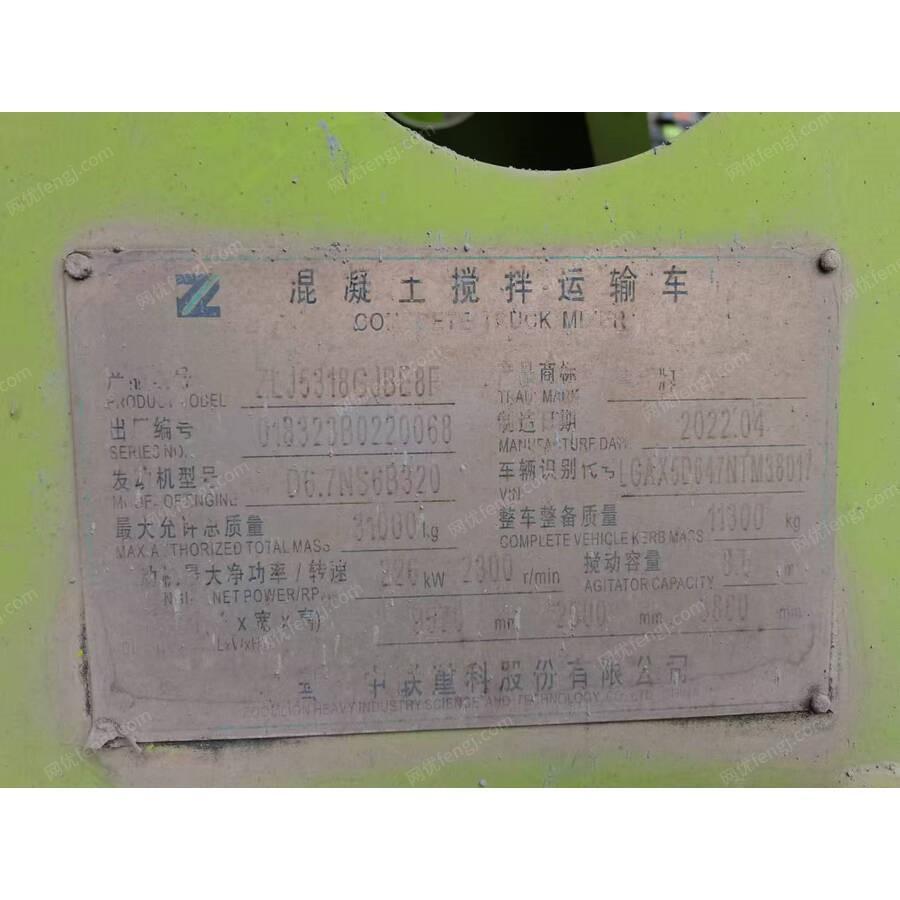 混凝土搅拌运输车
TRUCK MIXER
PRODUCT MODEL ZLJ5318GJBE8F 产品商标
TRADE MARK
出厂编号 018323B0220068 制造日期 2022.04
SERIES NO. MANUFACTURE DATE
发动机型号 D6.7NS6B320 车辆识别代号
MODEL OF ENGINE VIN
最大允许总质量 31000kg 整车整备质量 11300 kg
MAX AUTHORIZED TOTAL MASS COMPLETE VEHICLE KERB MASS
最大净功率/转速 226 kW 2300 r/min 搅动容量
NET POWER/RPM AGITATOR CAPACITY
x宽x高) mm mm mm
LxWxH
中联重科股份有限公司
ZOOMLION HEAVY INDUSTRY SCIENCE AND TECHNOLOGY CO., LTD.
网优fengj.com